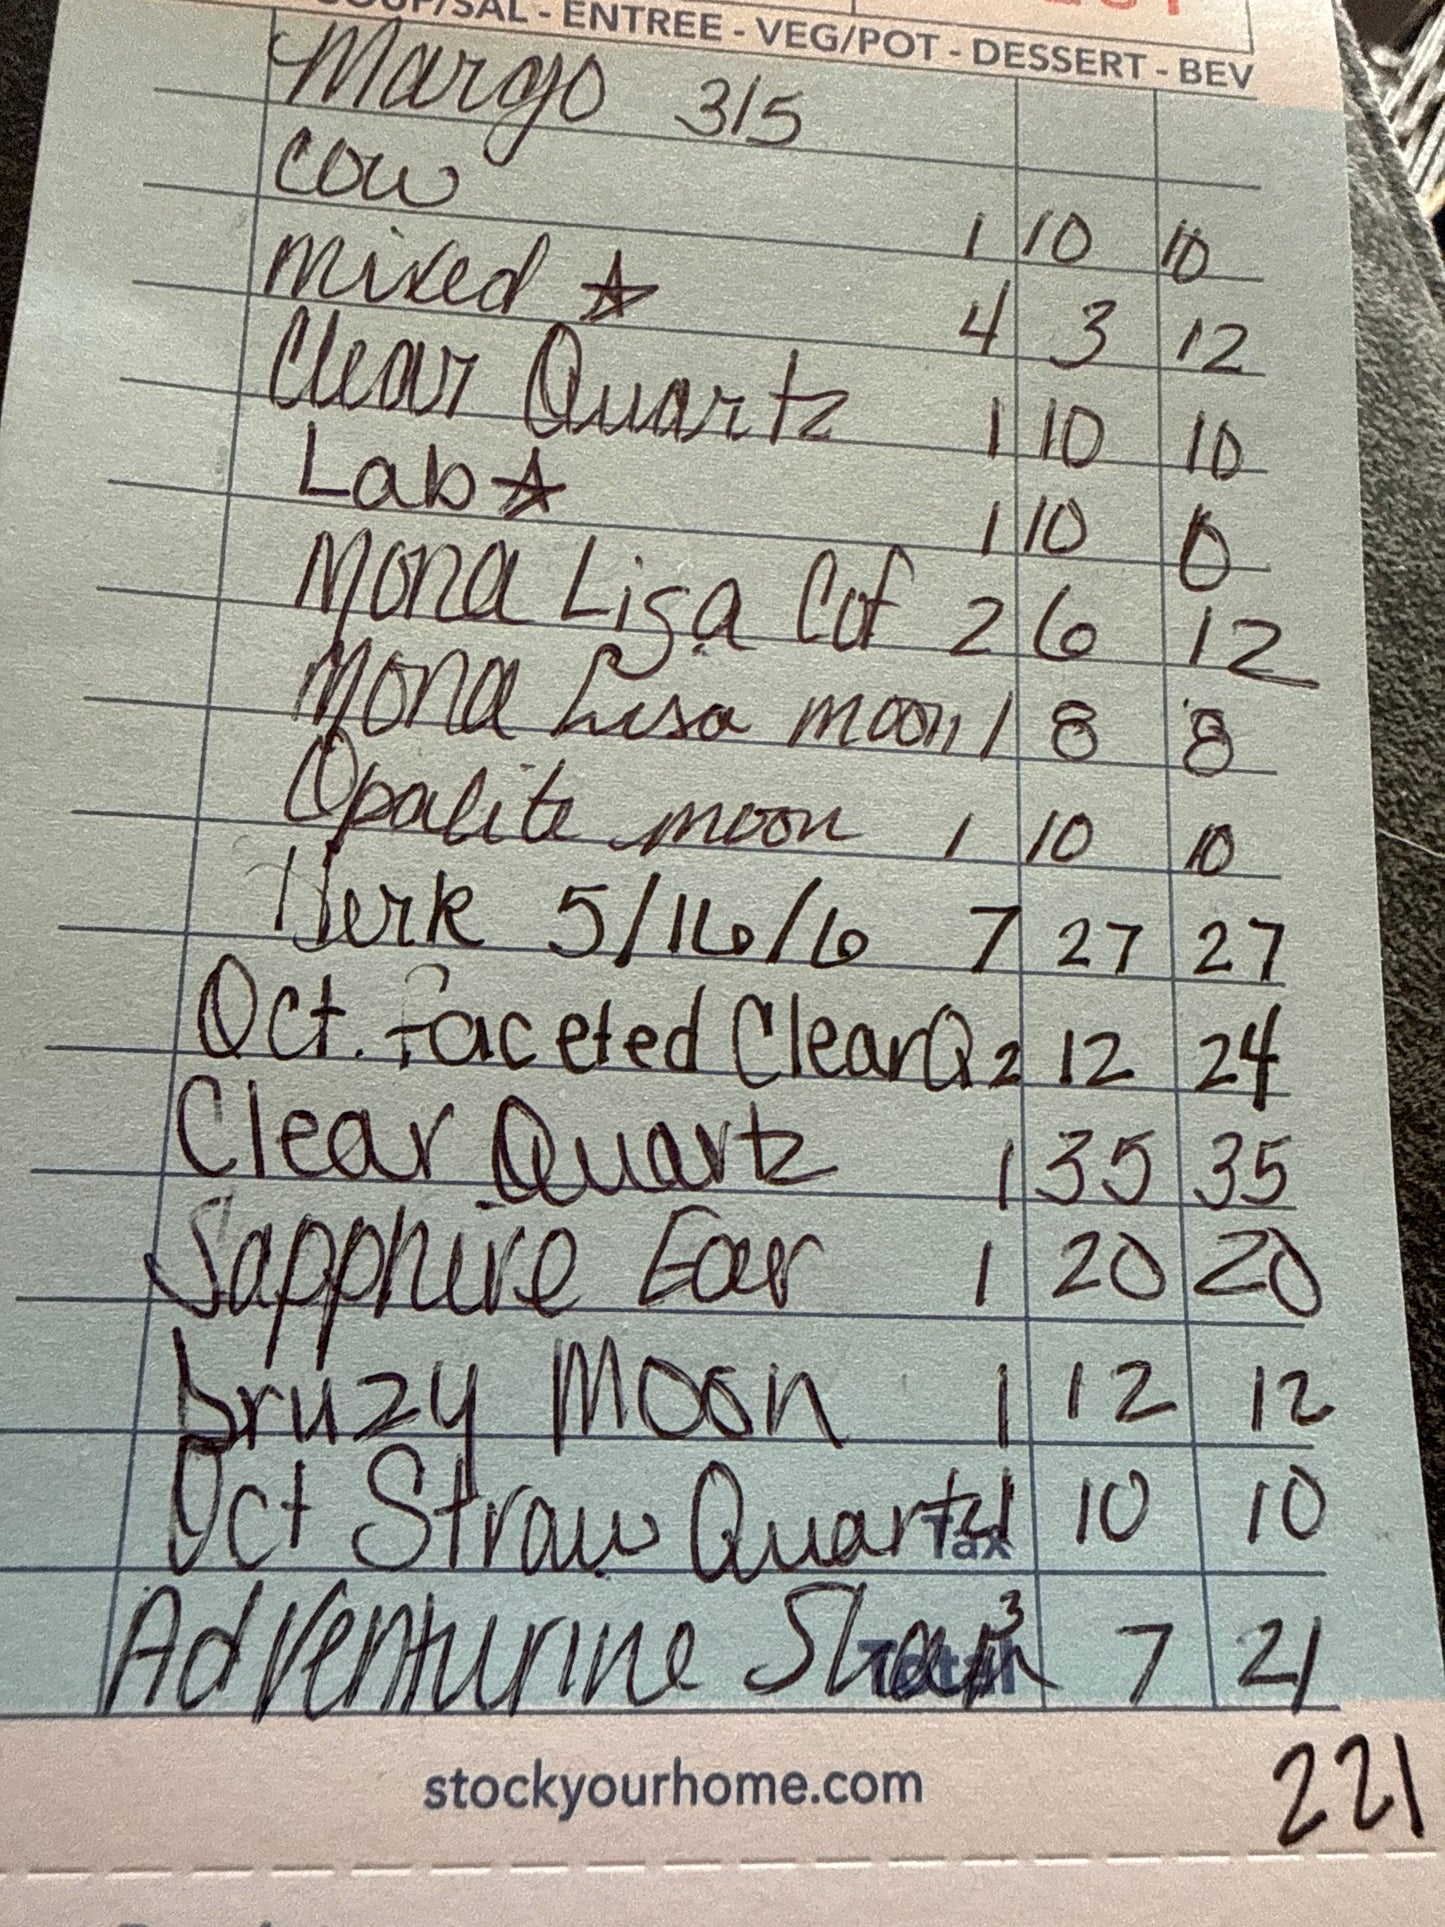 SOUP/SAL - ENTREE - VEG/POT - DESSERT - BEV
Margo 315
Cow 1 10 10
Mixed ☆ 4 3 12
Clear Quartz 1 10 10
Lab ☆ 1 10 10
Mona Lisa Cof 2 6 12
Mona Lisa moon 1 8 8
Opalite moon 1 10 10
Herk 5/16/6 7 27 27
Oct. Faceted Clear Q 2 12 24
Clear Quartz 1 35 35
Sapphire Ear 1 20 20
Druzy Moon 1 12 12
Oct Straw Quartz 1 10 10
Tax
Adventurine 3 7 21
Total
stockyourhome.com 221